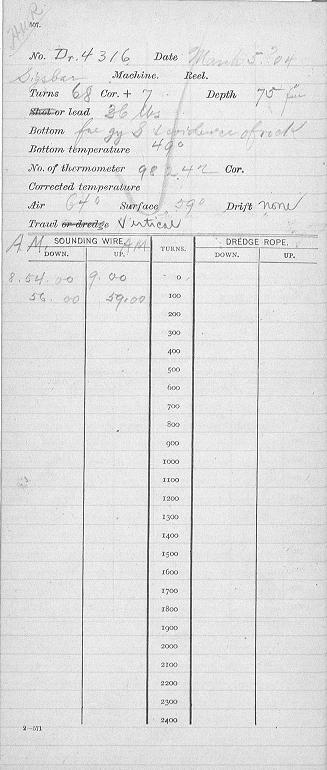 H.W.R.
507.
No. Dr. 4316 Date March 5." 04
Sigsbee Machine. Reel.
Turns 68 Cor. + 7 Depth 75 fm
Shot or lead 36 lbs
Bottom fne gy S & evidence of rock
Bottom temperature 49°
No. of thermometer 98242 Cor.
Corrected temperature
Air 64° Surface 59° Drift none
Trawl or dredge Vertical
A.M. SOUNDING WIRE. AM TURNS. DREDGE ROPE.
DOWN. UP. DOWN. UP.
8.54.00 9.00 0
56.00 59.00 100
200
300
400
500
600
700
800
900
1000
1100
1200
1300
1400
1500
1600
1700
1800
1900
2000
2100
2200
2300
2400
2—571